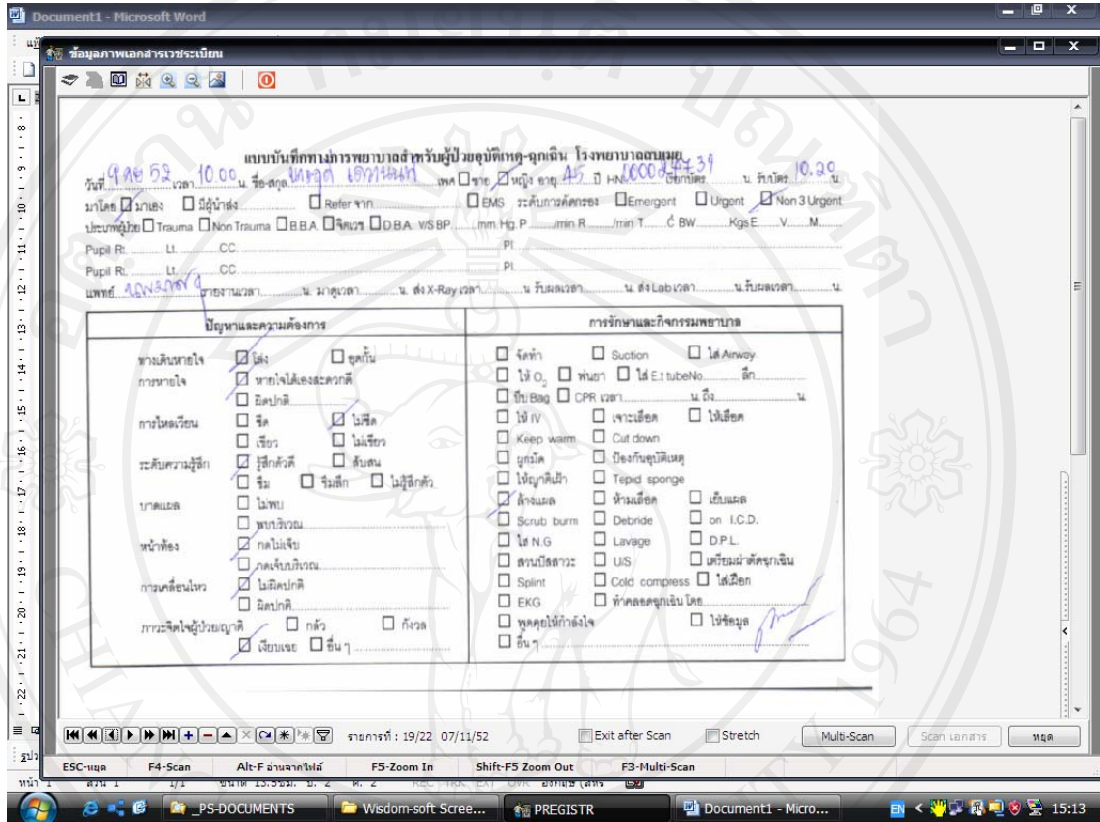 Document1 - Microsoft Word
ข้อมูลภาพเอกสารเวชระเบียน
แบบบันทึกทางการพยาบาลสำหรับผู้ป่วยอุบัติเหตุ-ฉุกเฉิน โรงพยาบาลสบเมย
วันที่ 9 52 เวลา 10.00 น. ชื่อ-สกุล เพศ ชาย หญิง อายุ 45 ปี HN เรียกบัตร น. รับบัตร 10.20 น.
มาโดย มาเอง มีผู้นำส่ง Refer จาก EMS ระดับการคัดกรอง Emergent Urgent Non Urgent
ประเภทผู้ป่วย Trauma Non Trauma B.B.A. จิตเวช D.B.A. V/S BP mm. Hg. P /min R /min T C BW Kgs E V M
Pupil Rt. Lt. CC. PI
Pupil Rt. Lt. CC. PI
แพทย์ รายงานเวลา น. มาดูเวลา น. ส่ง X-Ray เวลา น. รับผลเวลา น. ส่ง Lab เวลา น. รับผลเวลา น.
ปัญหาและความต้องการ การรักษาและกิจกรรมพยาบาล
ทางเดินหายใจ โล่ง อุดกั้น จัดท่า Suction ใส่ Airway
การหายใจ หายใจได้เองสะดวกดี ให้ O2 พ่นยา ใส่ E.t tube No ลึก
ผิดปกติ บีบ Bag CPR เวลา น. ถึง น.
การไหลเวียน ซีด ไม่ซีด ให้ IV เจาะเลือด ให้เลือด
เขียว ไม่เขียว Keep warm Cut down
ระดับความรู้สึก รู้สึกตัวดี สับสน ผูกมัด ป้องกันอุบัติเหตุ
ซึม ซึมลึก ไม่รู้สึกตัว ให้ญาติเฝ้า Tepid sponge
บาดแผล ไม่พบ ล้างแผล ห้ามเลือด เย็บแผล
พบบริเวณ Scrub burm Debride on I.C.D.
หน้าท้อง กดไม่เจ็บ ใส่ N.G Lavage D.P.L.
กดเจ็บบริเวณ สวนปัสสาวะ U/S เตรียมผ่าตัดฉุกเฉิน
การเคลื่อนไหว ไม่ผิดปกติ Splint Cold compress ใส่เฝือก
ผิดปกติ EKG ทำคลอดฉุกเฉิน โดย
ภาวะจิตใจผู้ป่วย/ญาติ กลัว กังวล พูดคุยให้กำลังใจ ให้ข้อมูล
เงียบเฉย อื่น ๆ อื่น ๆ
รายการที่ : 19/22 07/11/52 Exit after Scan Stretch Multi-Scan Scan เอกสาร หยุด
ESC-หยุด F4-Scan Alt-F อ่านจากไฟล์ F5-Zoom In Shift-F5 Zoom Out F3-Multi-Scan
_PS-DOCUMENTS Wisdom-soft Scree... PREGISTR Document1 - Micro... EN 15:13